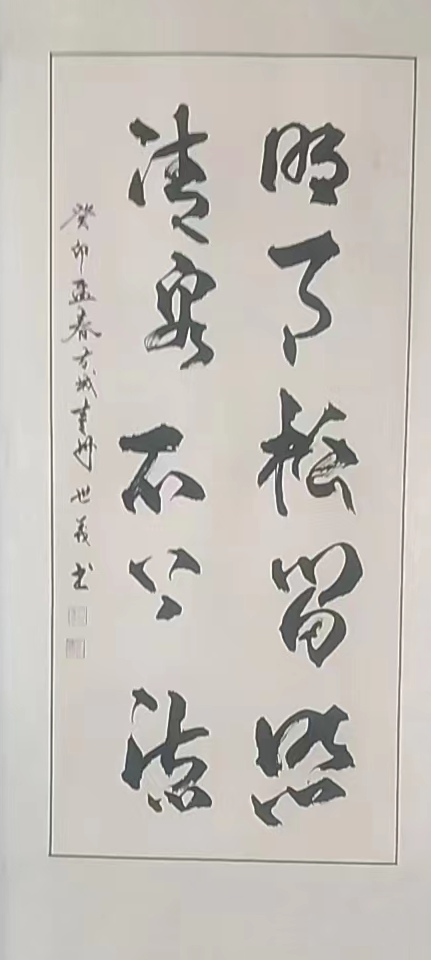 明月松間照
清泉石上流
癸卯孟春方城 世義书